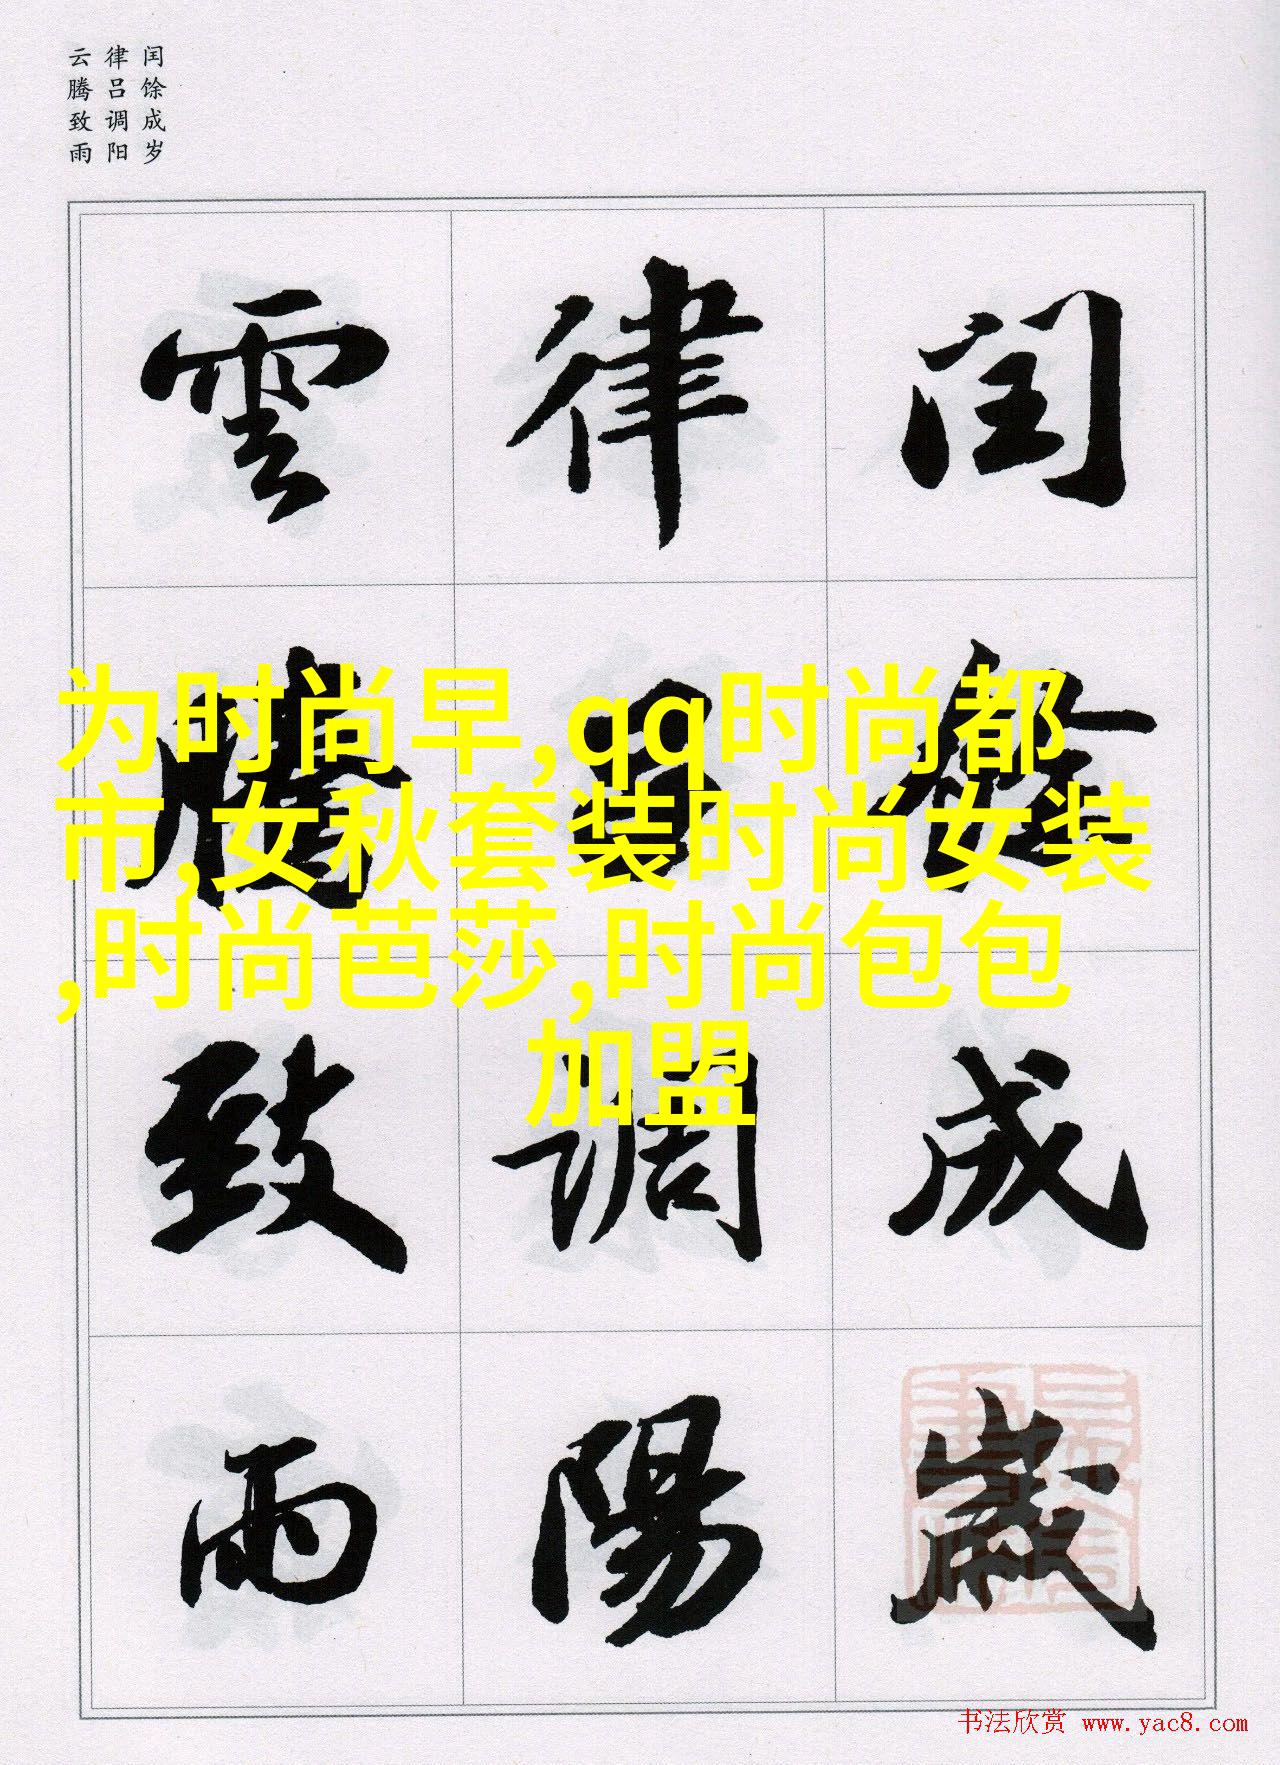 闰馀成岁
律吕调阳
云腾致雨
閏餘成歲
律吕調陽
雲騰致雨
为时尚早,qq时尚都
市,女秋套装时尚女装
,时尚芭莎,时尚包包
加盟
书法欣赏 www.yac8.com